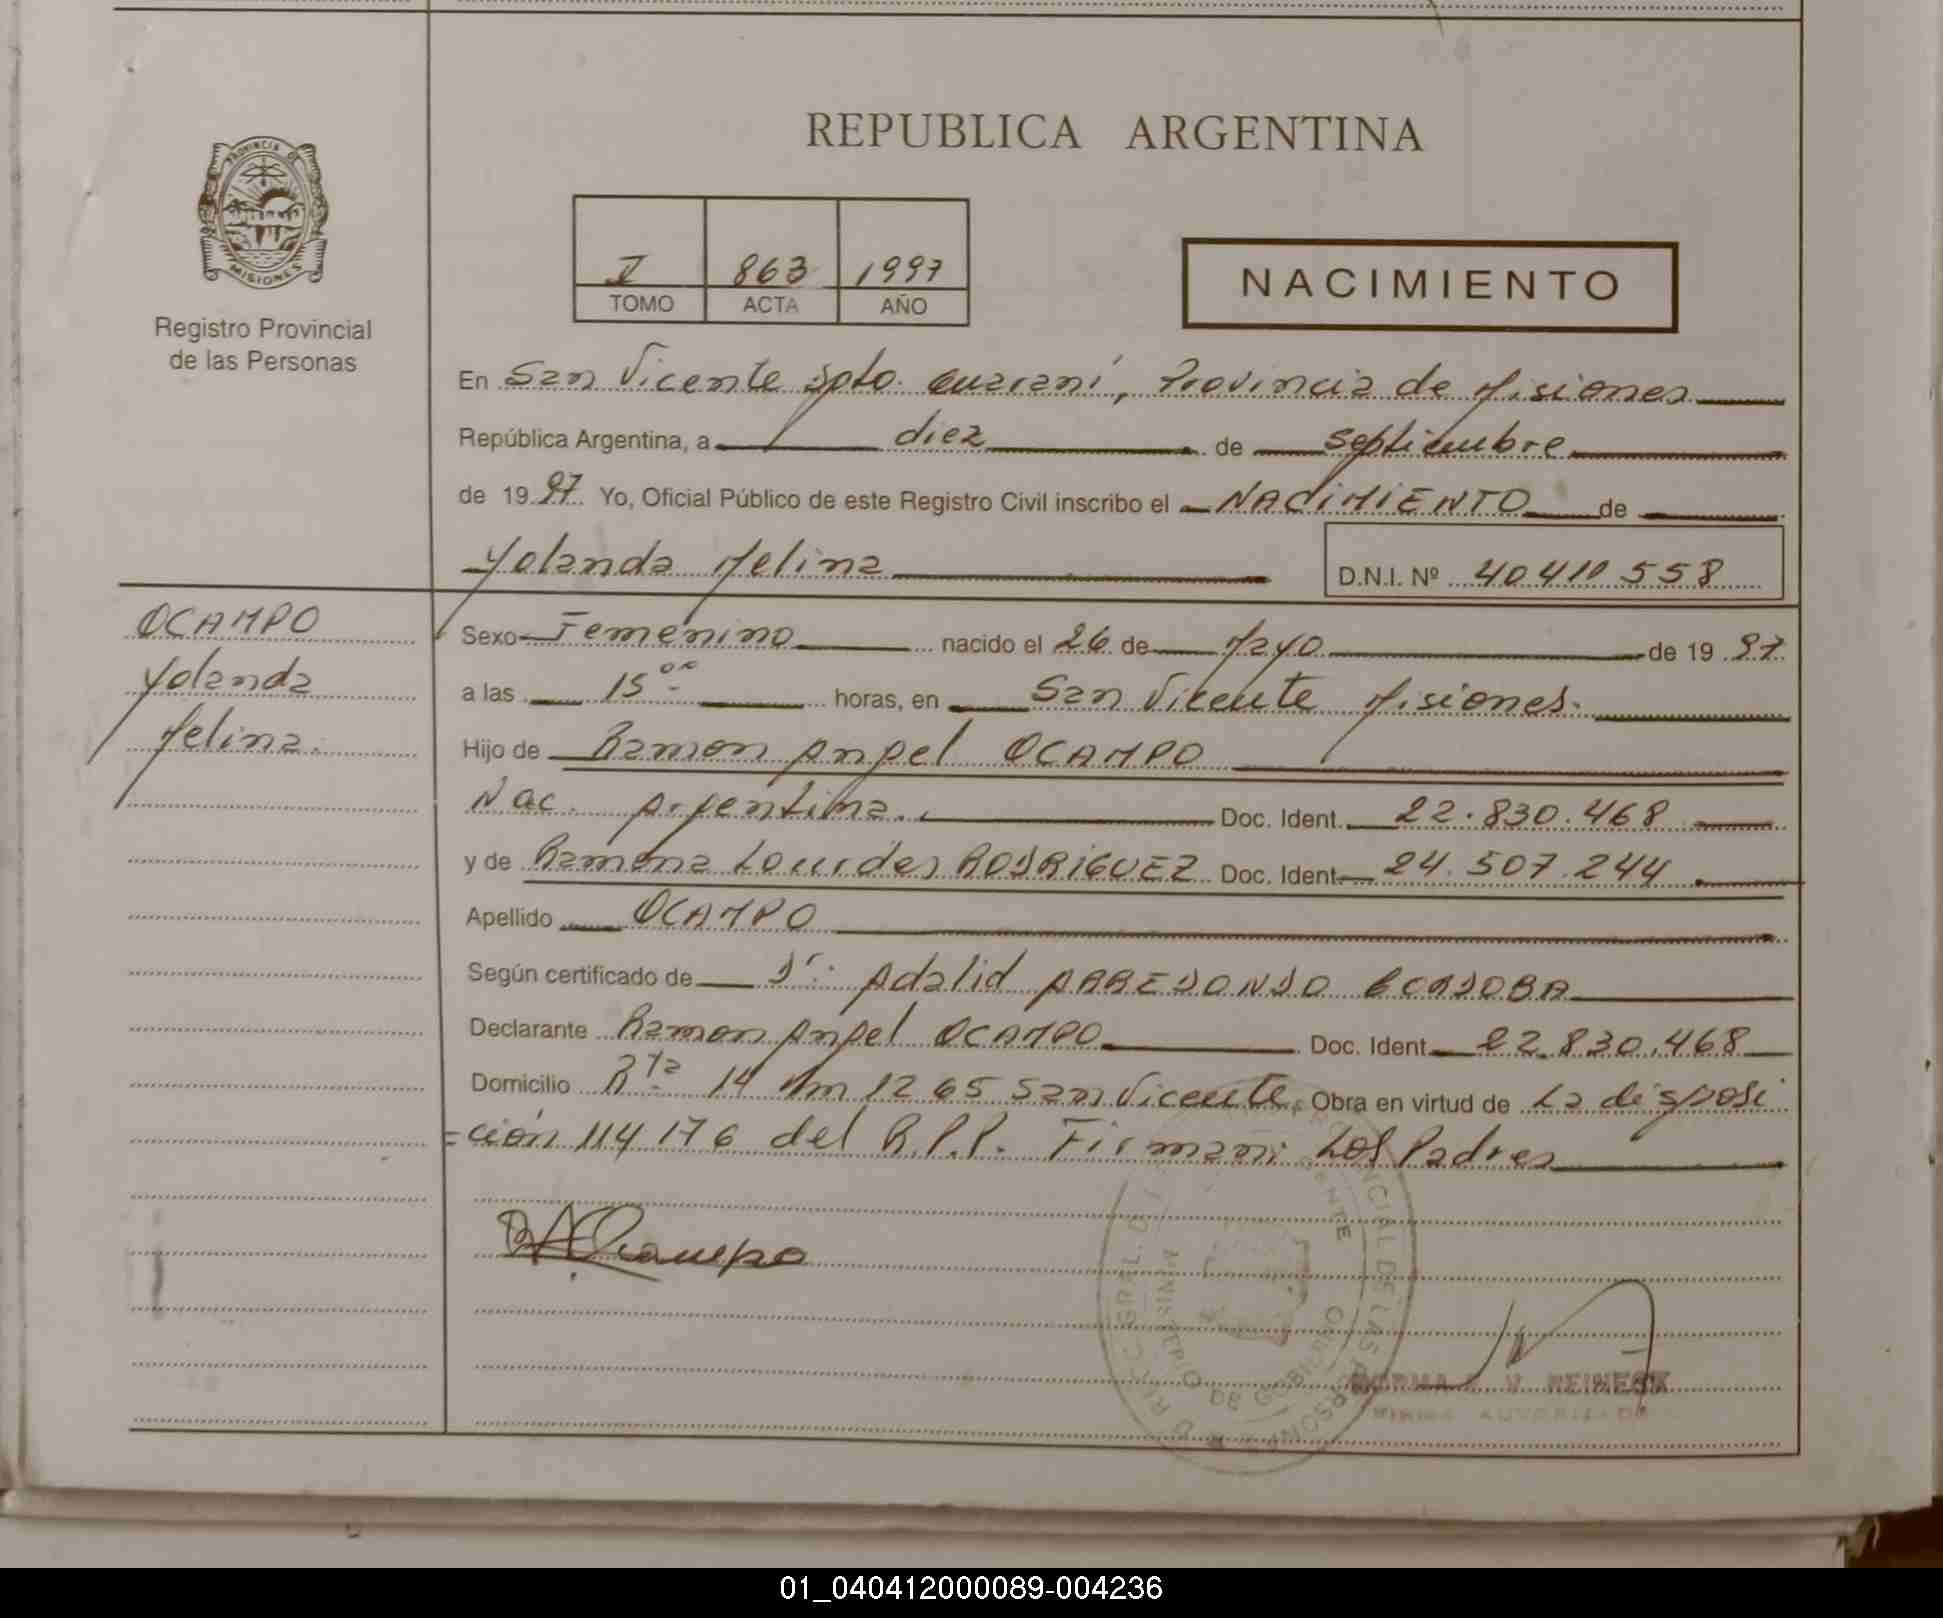 REPUBLICA ARGENTINA
PROVINCIA DE
MISIONES
Registro Provincial
de las Personas
I 863 1997
TOMO ACTA AÑO
NACIMIENTO
En San Vicente Dpto. Guaraní, Provincia de Misiones
República Argentina, a diez de septiembre
de 1997 Yo, Oficial Público de este Registro Civil inscribo el NACIMIENTO de
Yolanda Melina
D.N.I. Nº 40 410 558
OCAMPO
Yolanda
Melina.
Sexo Femenino nacido el 26 de Mayo de 1997
a las 15 ºº horas, en San Vicente Misiones.
Hijo de Ramon Angel OCAMPO
Nac. Argentina. Doc. Ident. 22.830.468
y de Ramona Lourdes RODRIGUEZ Doc. Ident. 24.507.244
Apellido OCAMPO
Según certificado de Dr: Adalid ARREDONDO CORDOBA
Declarante Ramon Angel OCAMPO Doc. Ident. 22.830.468
Domicilio Rta 14 Km 1265 San Vicente. Obra en virtud de La disposi
=ción 114176 del R.P.P. Firman: Los Padres
RAOcampo
MINISTERIO DE GOBIERNO
NORMA W. REINECK
FIRMA AUTORIZADA
01_040412000089-004236